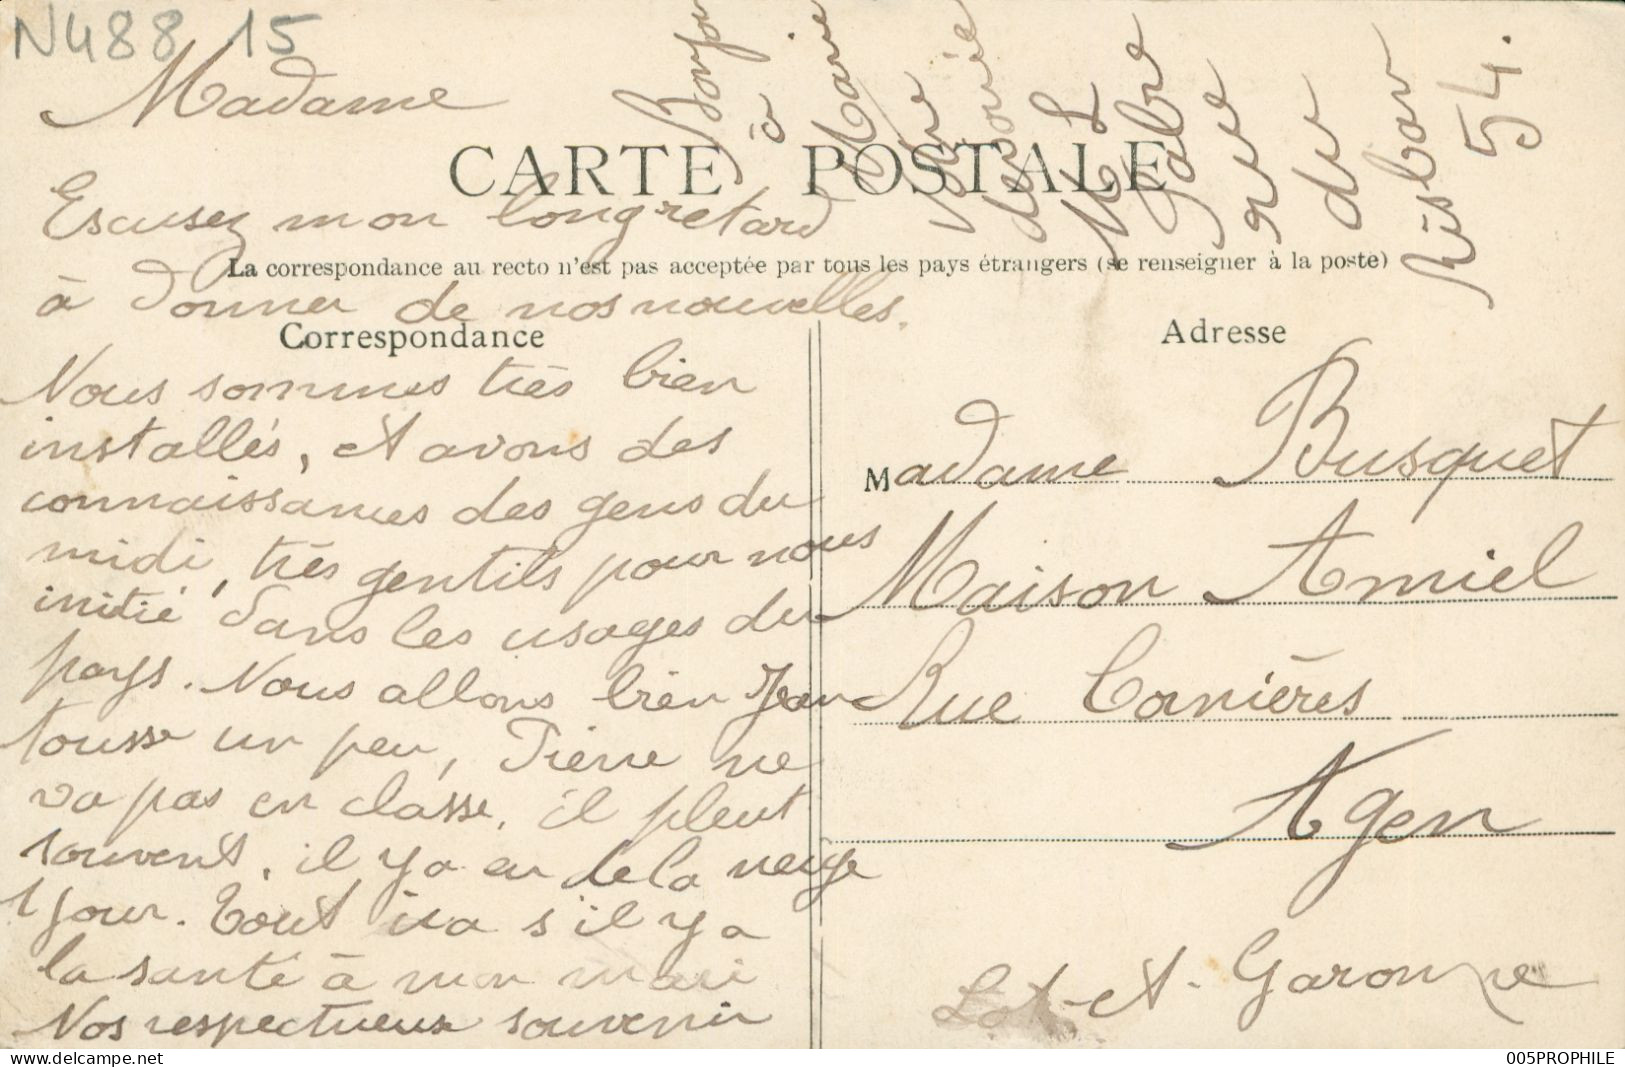 N488 15
Madame
Bonjour
à
Marie
Votre
dévouée
M L
Fabre
rue
du
Risban
54.
CARTE POSTALE
Escusez mon long retard
La correspondance au recto n'est pas acceptée par tous les pays étrangers (se renseigner à la poste)
à donner de nos nouvelles.
Correspondance
Adresse
Nous sommes très bien
installés, et avons des
connaissances des gens du
midi, très gentils pour nous
initié dans les usages du
pays. Nous allons bien Jean
tousse un peu, Pierre ne
va pas en classe, il pleut
souvent, il y a eu de la neige
1 jour. Tout ira s'il y a
la santé à mon mari
Nos respectueux souvenir
Madame Busquet
Maison Amiel
Rue Cornières
Agen
Lot-et-Garonne
delcampe.net
005PROPHILE